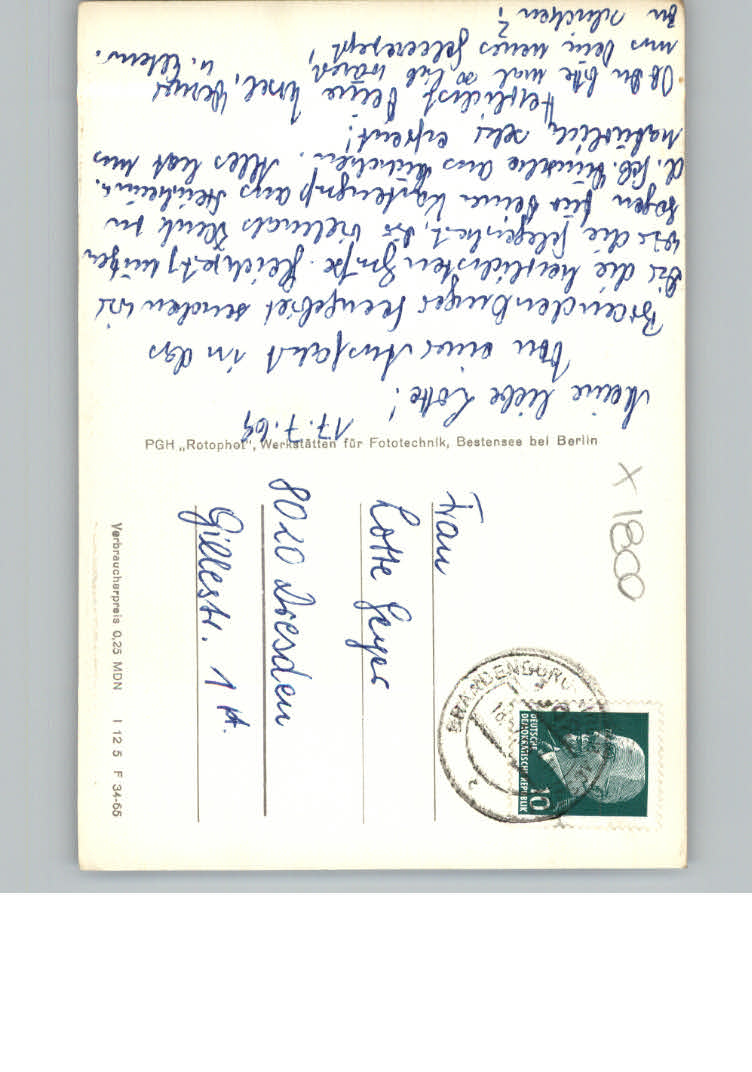 17.7.69
Meine liebe Lotte!
Von einer Ausfahrt in das
Brandenburger Seengebiet senden wir
Dir die herzlichsten Grüße. Gleichzeitig nutzen
wir die Gelegenheit, Dir vielmals Dank zu
sagen für Deine Kartengrüße aus
d. Geb. aus München. Alles hat uns
natürlich sehr erfreut!
Herzlichst Deine Ursel, Werner
u. Eltern.
Ob Du bitte mal so lieb wärest,
uns Dein neues zu
schicken?
PGH „Rotophot", Werkstätten für Fototechnik, Bestensee bei Berlin
Frau
Lotte Geyer
8020 Dresden
Gillestr. 1
x 1800
BRANDENBURG
DEUTSCHE
DEMOKRATISCHE REPUBLIK
10
Verbraucherpreis 0,25 MDN I 12 5 F 34-65